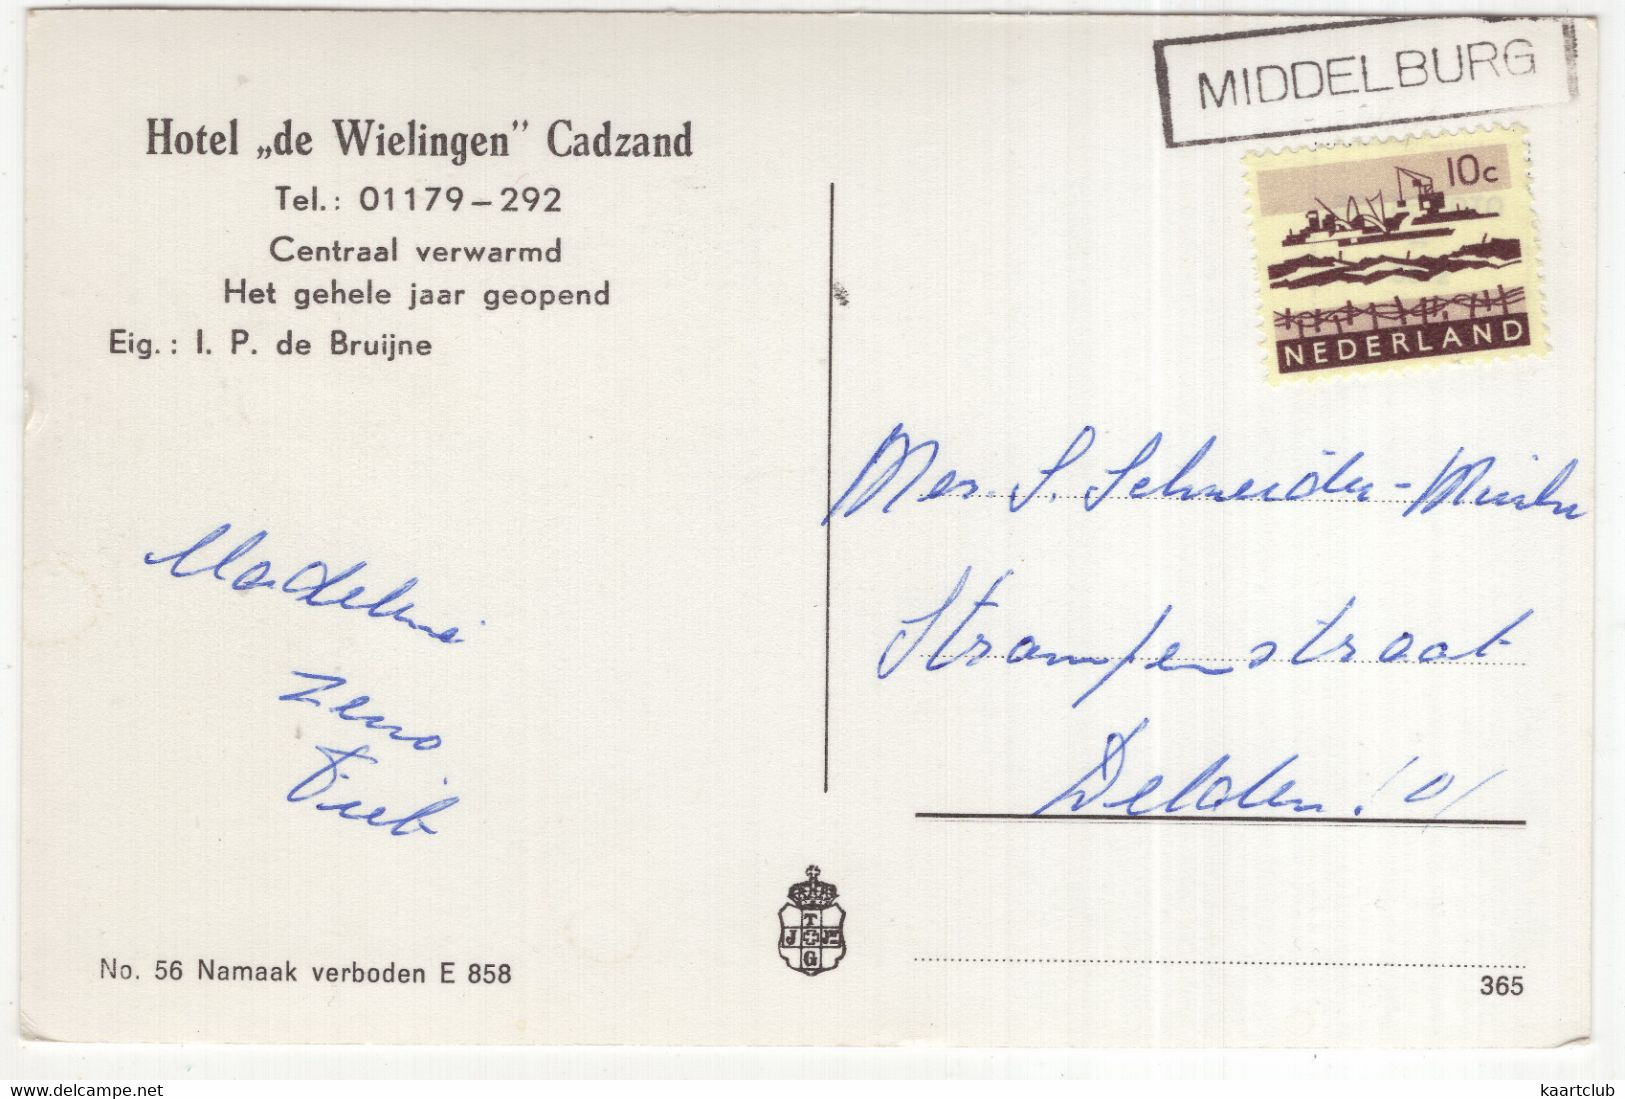 MIDDELBURG
10c
NEDERLAND
Hotel „de Wielingen” Cadzand
Tel.: 01179–292
Centraal verwarmd
Het gehele jaar geopend
Eig.: I. P. de Bruijne
S. Schneider-
Strampenstraat
Delden (O)
Madeleine
Zeno
No. 56 Namaak verboden E 858
T
J
G
365
www.delcampe.net
kaartclub